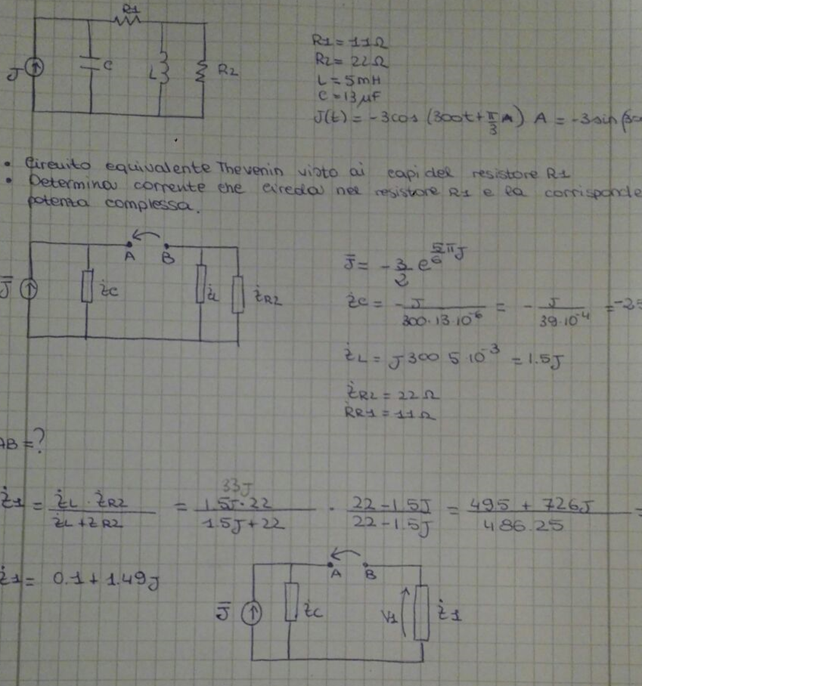 R1
J
C
L
R2
R1 = 11Ω
R2 = 22Ω
L = 5mH
C = 13μF
J(t) = -3cos (300t + π/3) A = -3sin
• Circuito equivalente Thevenin visto ai capi del resistore R1
• Determina corrente che circola nel resistore R1 e la corrisponde
potenza complessa.
J̄
żC
A
B
żL
żR2
J̄ = -3/2 e^(5/6 πJ)
żC = -J/(300·13·10^-6) = -J/(39·10^-4) = -25
żL = J300 5 10^-3 = 1.5J
żR2 = 22Ω
żR1 = 11Ω
AB = ?
ż1 = (żL · żR2)/(żL + żR2) = (33J 1.5J·22)/(1.5J+22) · (22-1.5J)/(22-1.5J) = (49.5 + 726J)/(486.25) =
ż1 = 0.1 + 1.49J
J̄
żC
A
B
V1
ż1